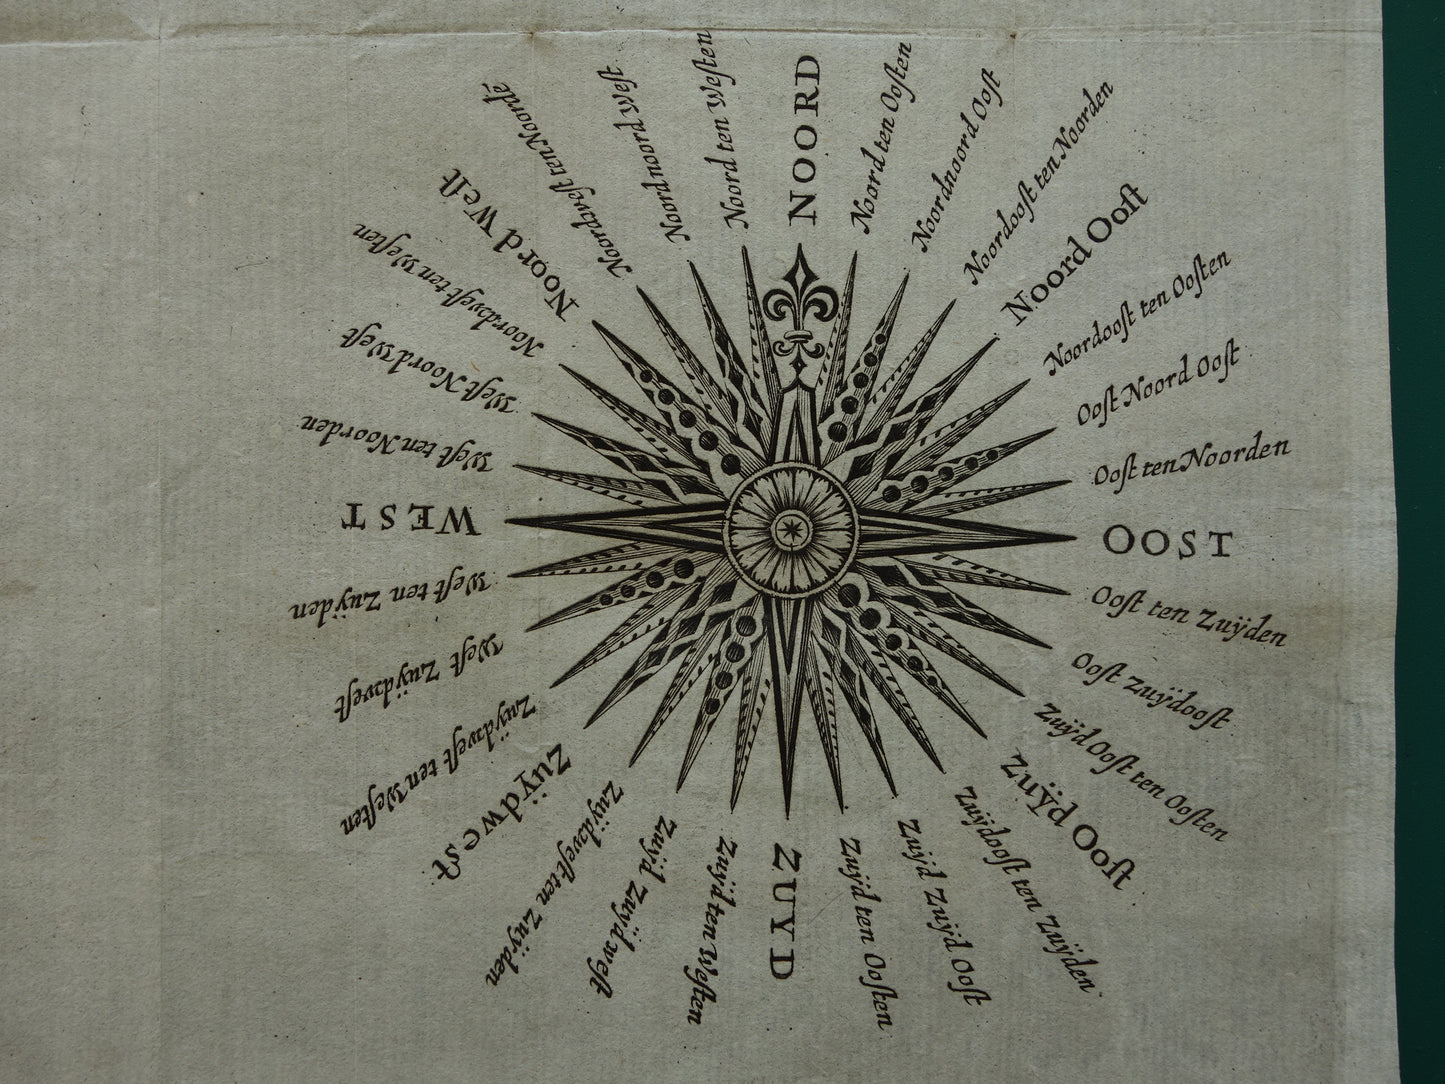 NOORD
Noord ten Oosten
Noordnoord Oost
Noordoost ten Noorden
Noord Oost
Noordoost ten Oosten
Oost Noord Oost
Oost ten Noorden
OOST
Oost ten Zuÿden
Oost Zuÿdoost
Zuÿd Oost ten Oosten
Zuÿd Oost
Zuÿdoost ten Zuÿden
Zuÿd Zuÿd Oost
Zuÿd ten Oosten
ZUYD
Zuÿd ten Westen
Zuÿd Zuÿdwest
Zuÿdwest ten Zuÿden
Zuÿdwest
Zuÿdwest ten Westen
West Zuÿdwest
West ten Zuÿden
WEST
West ten Noorden
West Noord West
Noordwest ten Westen
Noord West
Noordwest ten Noordē
Noordnoord West
Noord ten Westen